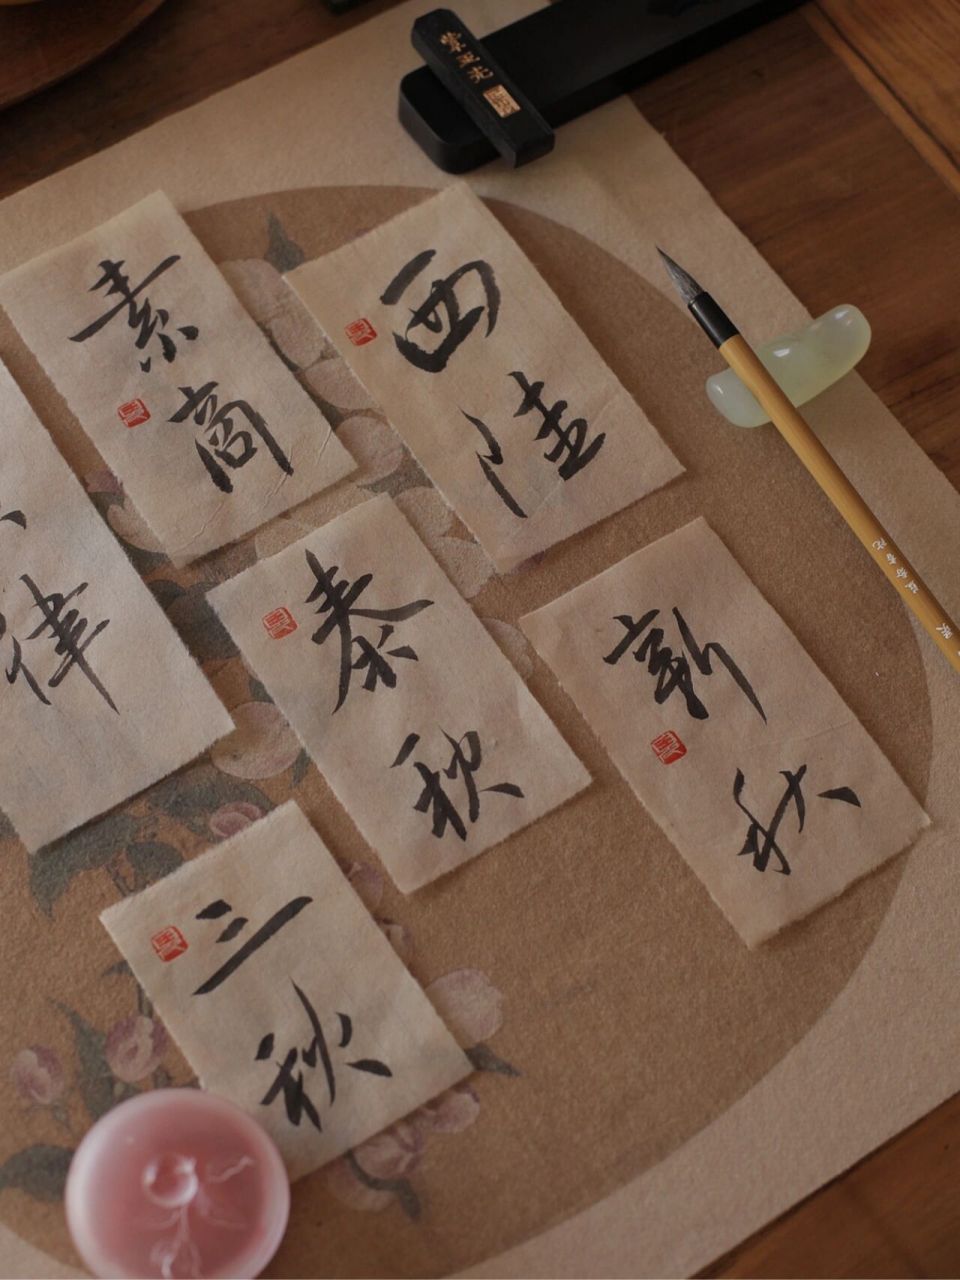 紫玉光
素商
西陸
律
泰秋
新秋
三秋